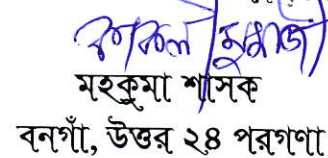 মহকুমা শাসক
বনগাঁ, উত্তর ২৪ পরগণা